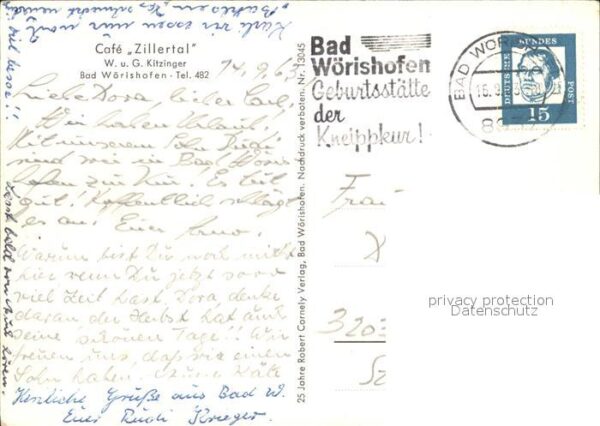 Café „Zillertal"
W. u. G. Kitzinger
Bad Wörishofen - Tel. 482
14.9.63
Liebe Dora, lieber Carl,
Wir haben Urlaub.
Mit unserem Sohn Rudi
sind wir in Bad Wöris-
hofen zur Kur. Es tut
gut! Hoffentlich schlägt
es an. Euer Arno.
Warum bist Du noch nicht
hier wenn Du jetzt sooo
viel Zeit hast. Dora denke
daran der Herbst hat auch
seine schönen Tage!! Wir
freuen uns, daß wir einen
Sohn haben. Eure Käte
Herzliche Grüße aus Bad W.
Euer Rudi Krieger.
viel besser!!
Lasst bald von Euch hören.
25 Jahre Robert Cornely Verlag, Bad Wörishofen. Nachdruck verboten. Nr. 13045
Bad
Wörishofen
Geburtsstätte
der
Kneippkur!
BAD WÖRISHOFEN
DEUTSCHE BUNDESPOST
15
Frau
X
320
Sz
privacy protection
Datenschutz